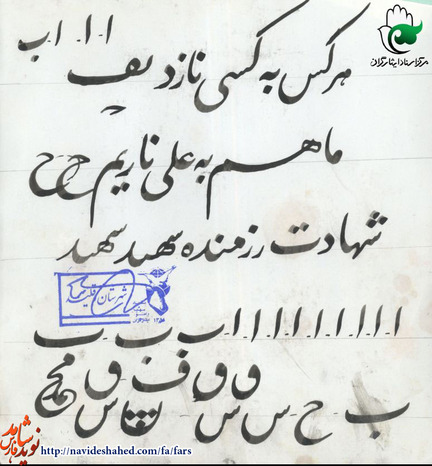 مرکز اسناد ایثارگران
ا ا ا ب
هر کس به کسی نازد یف
ما هم به علی نازیم ح ح
شهادت رزمنده سهید سهید
ا ا ا ا ا ا ا ا ب ب ب
و و ف و
ب ح س س
نوید شاهد فارس
http://navideshahed.com/fa/fars